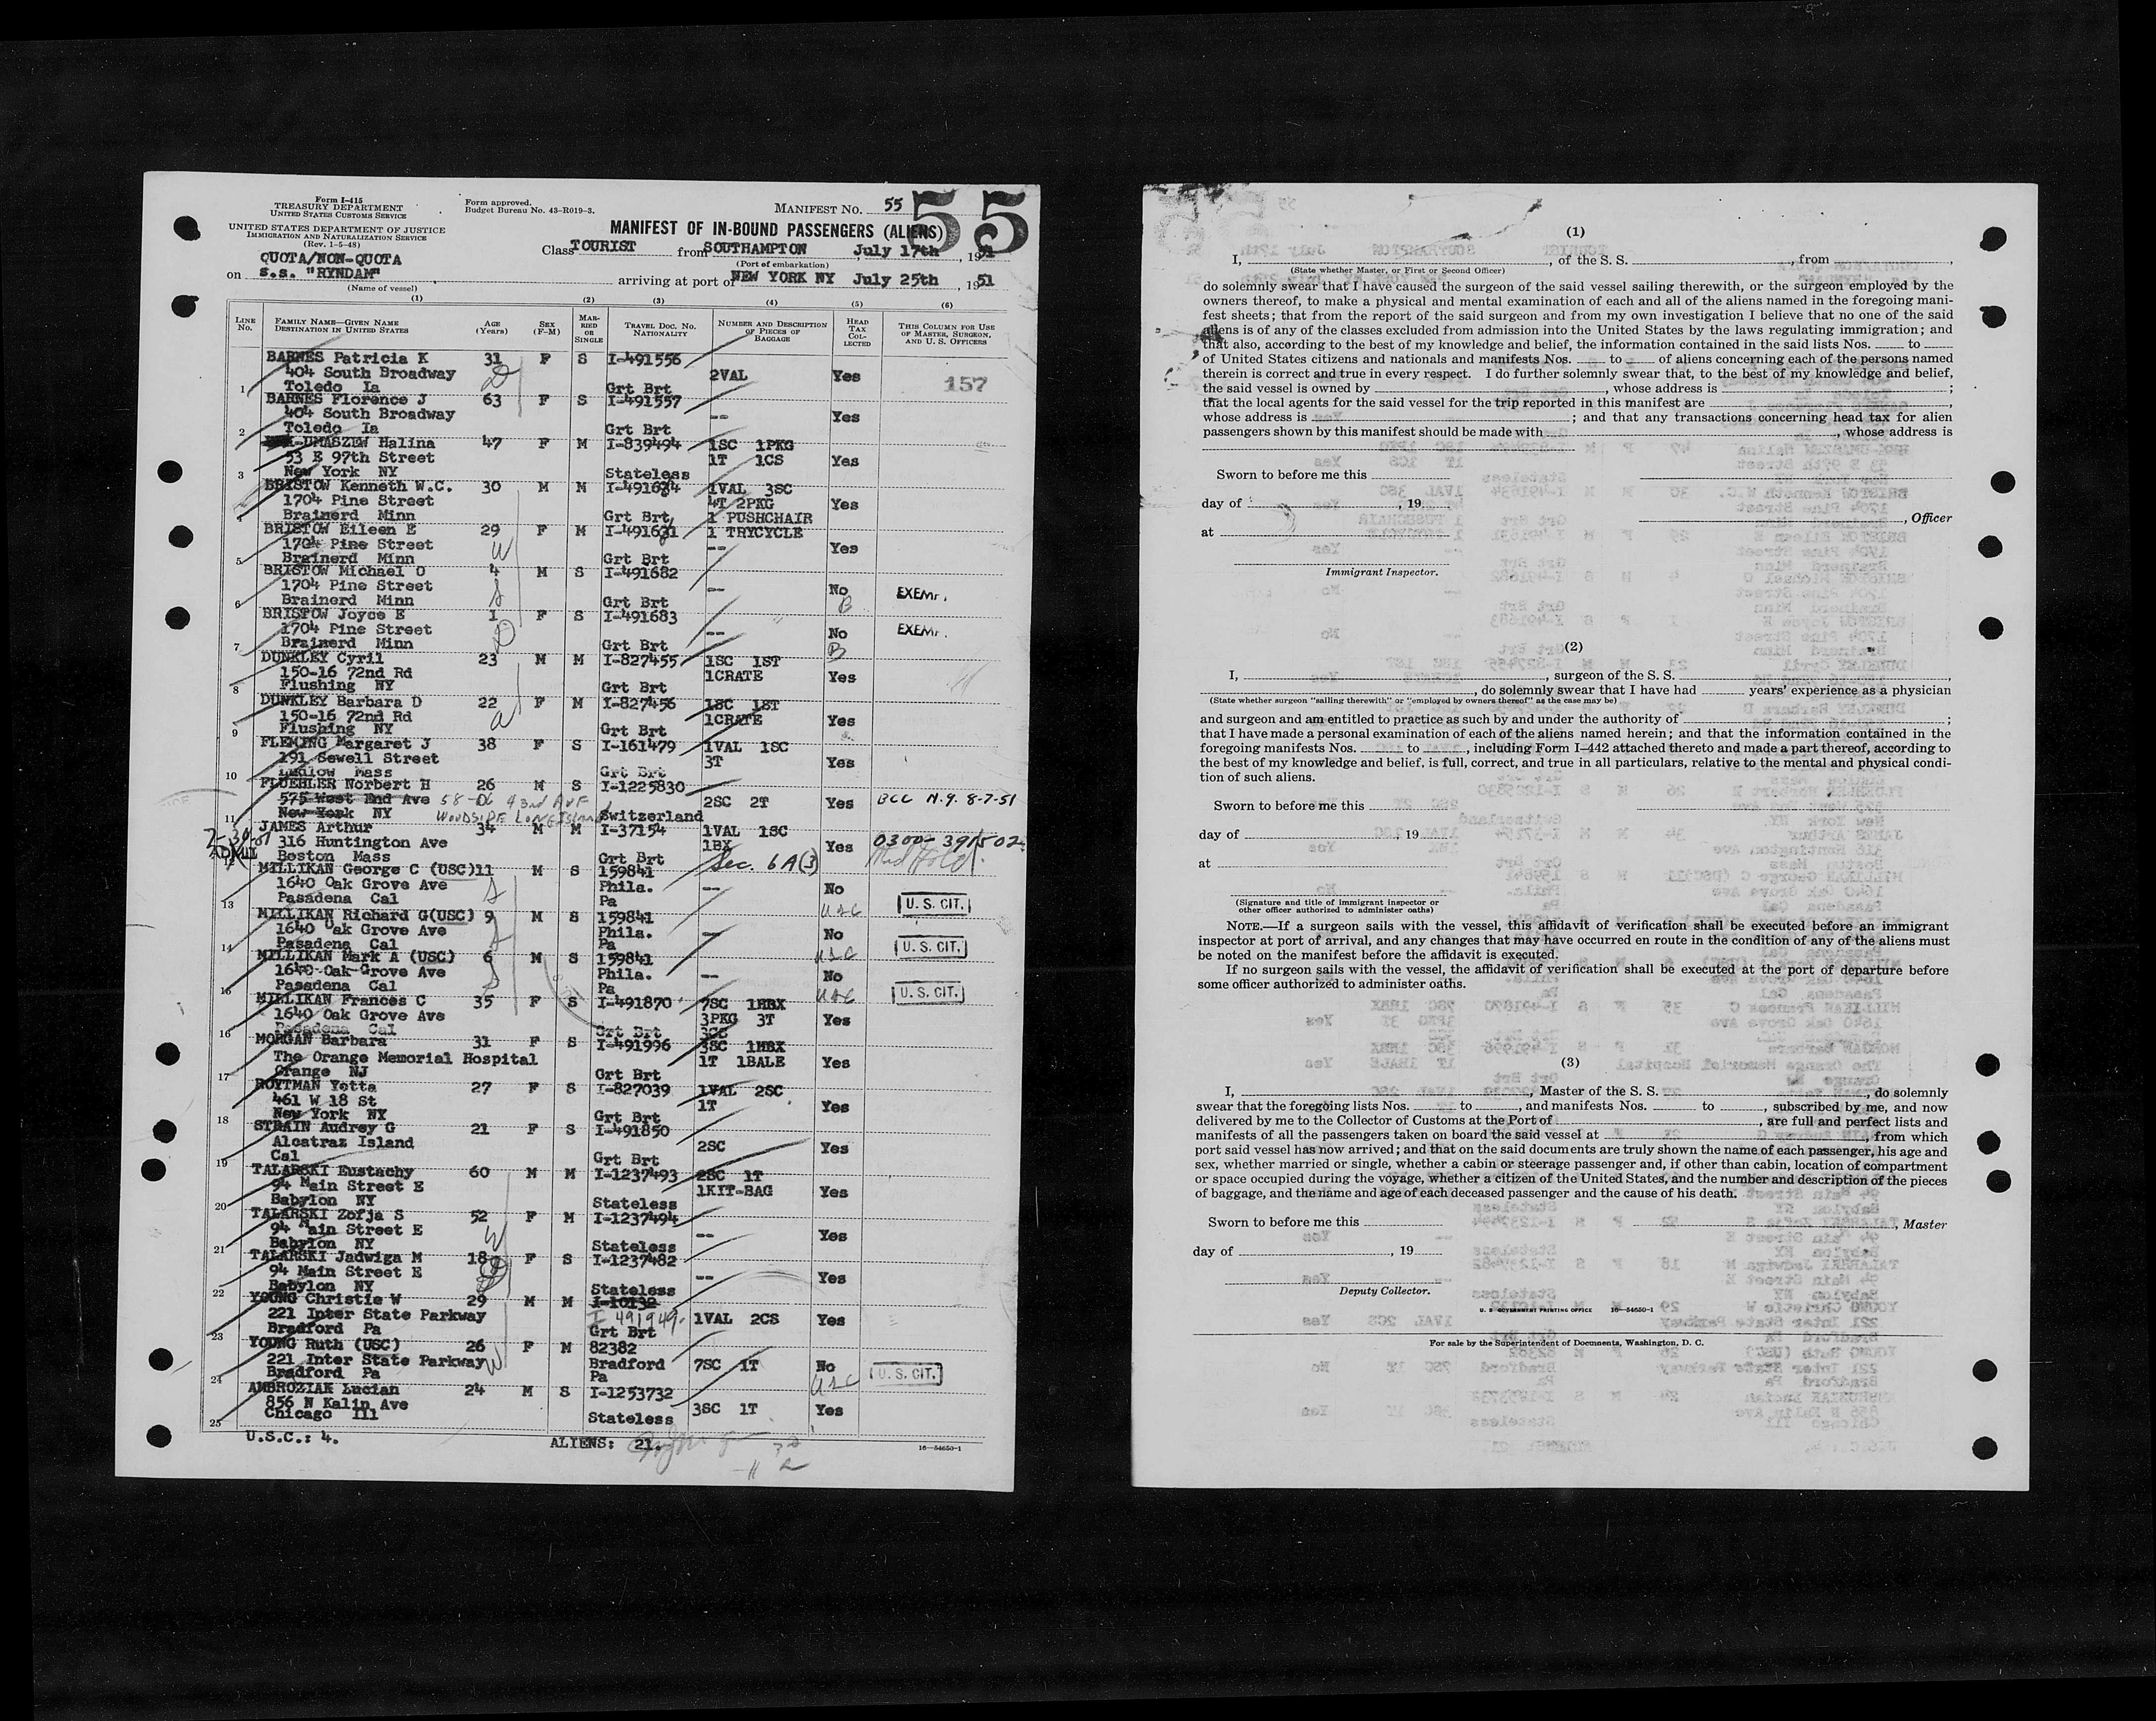 Form I-415
TREASURY DEPARTMENT
UNITED STATES CUSTOMS SERVICE
UNITED STATES DEPARTMENT OF JUSTICE
IMMIGRATION AND NATURALIZATION SERVICE
(Rev. 1-5-48)
Form approved.
Budget Bureau No. 43-R019-3.
MANIFEST No. 55
55
MANIFEST OF IN-BOUND PASSENGERS (ALIENS)
Class TOURIST from SOUTHAMPTON July 17th, 1951
(Port of embarkation)
QUOTA/NON-QUOTA
on s.s. "RYNDAM" arriving at port of NEW YORK NY July 25th, 1951
(Name of vessel)
(1) (2) (3) (4) (5) (6)
LINE No. FAMILY NAME—GIVEN NAME DESTINATION IN UNITED STATES AGE (Years) SEX (F-M) MARRIED OR SINGLE TRAVEL DOC. NO. NATIONALITY NUMBER AND DESCRIPTION OF PIECES OF BAGGAGE HEAD TAX COLLECTED THIS COLUMN FOR USE OF MASTER, SURGEON, AND U. S. OFFICERS
BARNES Patricia K 31 F S I-491556
404 South Broadway 2VAL Yes 157
1 Toledo Ia Grt Brt
BARNES Florence J 63 F S I-491557
404 South Broadway -- Yes
2 Toledo Ia Grt Brt
-UMASZEW Halina 47 F M I-839494 1SC 1PKG
53 E 97th Street 1T 1CS Yes
3 New York NY Stateless
BRISTOW Kenneth W.C. 30 M M I-491684 1VAL 3SC
1704 Pine Street 4T 2PKG Yes
4 Brainerd Minn Grt Brt 1 PUSHCHAIR
BRISTOW Eileen E 29 F M I-491681 1 TRYCYCLE
1704 Pine Street W -- Yes
5 Brainerd Minn Grt Brt
BRISTOW Michael O 4 M S I-491682
1704 Pine Street -- No EXEMPT.
6 Brainerd Minn Grt Brt B
BRISTOW Joyce E 1 F S I-491683
1704 Pine Street -- No EXEMPT.
7 Brainerd Minn Grt Brt B
DUNKLEY Cyril 23 M M I-827455 1SC 1ST
150-16 72nd Rd 1CRATE Yes
8 Flushing NY Grt Brt
DUNKLEY Barbara D 22 F M I-827456 1SC 1ST
150-16 72nd Rd 1CRATE Yes
9 Flushing NY Grt Brt
FLEMING Margaret J 38 F S I-161479 1VAL 1SC
191 Sewell Street 3T Yes
10 Ludlow Mass Grt Brt
FLUEHLER Norbert H 26 M S I-1225830
575 West End Ave 58-06 43rd AVE 2SC 2T Yes BCC N.Y. 8-7-51
11 New York NY WOODSIDE LONG ISLAND Switzerland
JAMES Arthur 34 M M I-37154 1VAL 1SC
316 Huntington Ave 1BX Yes 0300-391502
12 Boston Mass Grt Brt Sec. 6A(3)
MILLIKAN George C (USC) 11 M S 159841
1640 Oak Grove Ave Phila. -- No
13 Pasadena Cal Pa USC U. S. CIT.
MILLIKAN Richard G(USC) 9 M S 159841
1640 Oak Grove Ave Phila. -- No
14 Pasadena Cal Pa USC U. S. CIT.
MILLIKAN Mark A (USC) 6 M S 159841
1640 Oak Grove Ave Phila. -- No
15 Pasadena Cal Pa USC U. S. CIT.
MILLIKAN Frances C 35 F S I-491870 7SC 1HBX
1640 Oak Grove Ave 3PKG 3T Yes
16 Pasadena Cal Grt Brt
MORGAN Barbara 31 F S I-491996 3SC 1HBX
The Orange Memorial Hospital 1T 1BALE Yes
17 Orange NJ Grt Brt
ROYTMAN Yetta 27 F S I-827039 1VAL 2SC
461 W 18 St 1T Yes
18 New York NY Grt Brt
STRAIN Audrey G 21 F S I-491850
Alcatraz Island 2SC Yes
19 Cal Grt Brt
TALARSKI Eustachy 60 M M I-1237493 2SC 1T
94 Main Street E 1KIT-BAG Yes
20 Babylon NY Stateless
TALARSKI Zofja S 52 F M I-1237494
94 Main Street E W -- Yes
21 Babylon NY Stateless
TALARSKI Jadwiga M 18 F S I-1237482
94 Main Street E -- Yes
22 Babylon NY Stateless
YOUNG Christie W 29 M M I-10132
221 Inter State Parkway I 491949 1VAL 2CS Yes
23 Bradford Pa Grt Brt
YOUNG Ruth (USC) 26 F M 82382
221 Inter State Parkway W Bradford 7SC 1T No
24 Bradford Pa Pa USC U. S. CIT.
AMBROZIAK Lucian 24 M S I-1253732
856 N Kalin Ave 3SC 1T Yes
25 Chicago Ill Stateless
U.S.C.: 4. ALIENS: 21. 16—54650-1
(1)
I, , of the S. S. , from ,
(State whether Master, or First or Second Officer)
do solemnly swear that I have caused the surgeon of the said vessel sailing therewith, or the surgeon employed by the
owners thereof, to make a physical and mental examination of each and all of the aliens named in the foregoing mani-
fest sheets; that from the report of the said surgeon and from my own investigation I believe that no one of the said
aliens is of any of the classes excluded from admission into the United States by the laws regulating immigration; and
that also, according to the best of my knowledge and belief, the information contained in the said lists Nos. to
of United States citizens and nationals and manifests Nos. to of aliens concerning each of the persons named
therein is correct and true in every respect. I do further solemnly swear that, to the best of my knowledge and belief,
the said vessel is owned by , whose address is ;
that the local agents for the said vessel for the trip reported in this manifest are ,
whose address is ; and that any transactions concerning head tax for alien
passengers shown by this manifest should be made with , whose address is
Sworn to before me this
day of , 19
, Officer
at
Immigrant Inspector.
(2)
I, , surgeon of the S. S. ,
, do solemnly swear that I have had years' experience as a physician
(State whether surgeon "sailing therewith" or "employed by owners thereof" as the case may be)
and surgeon and am entitled to practice as such by and under the authority of ;
that I have made a personal examination of each of the aliens named herein; and that the information contained in the
foregoing manifests Nos. to , including Form I-442 attached thereto and made a part thereof, according to
the best of my knowledge and belief, is full, correct, and true in all particulars, relative to the mental and physical condi-
tion of such aliens.
Sworn to before me this
day of , 19
at
(Signature and title of immigrant inspector or
other officer authorized to administer oaths)
NOTE.—If a surgeon sails with the vessel, this affidavit of verification shall be executed before an immigrant
inspector at port of arrival, and any changes that may have occurred en route in the condition of any of the aliens must
be noted on the manifest before the affidavit is executed.
If no surgeon sails with the vessel, the affidavit of verification shall be executed at the port of departure before
some officer authorized to administer oaths.
(3)
I, , Master of the S. S. , do solemnly
swear that the foregoing lists Nos. to , and manifests Nos. to , subscribed by me, and now
delivered by me to the Collector of Customs at the Port of , are full and perfect lists and
manifests of all the passengers taken on board the said vessel at , from which
port said vessel has now arrived; and that on the said documents are truly shown the name of each passenger, his age and
sex, whether married or single, whether a cabin or steerage passenger and, if other than cabin, location of compartment
or space occupied during the voyage, whether a citizen of the United States, and the number and description of the pieces
of baggage, and the name and age of each deceased passenger and the cause of his death.
Sworn to before me this
, Master
day of , 19
Deputy Collector.
U. S. GOVERNMENT PRINTING OFFICE 16—54650-1
For sale by the Superintendent of Documents, Washington, D. C.